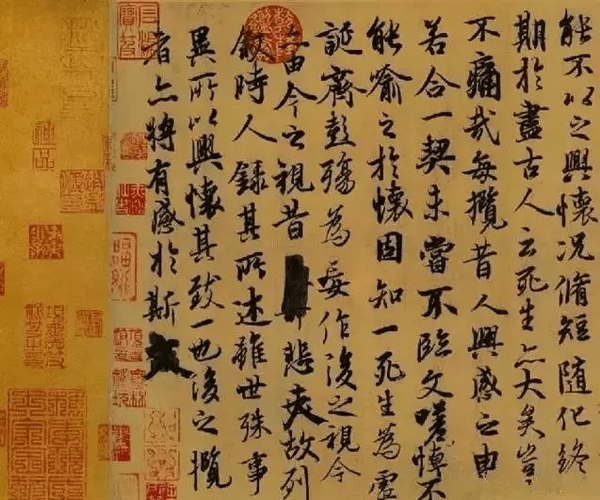 能不以之興懷况脩短隨化終
期於盡古人云死生亦大矣豈
不痛哉每攬昔人興感之由
若合一契未嘗不臨文嗟悼不
能喻之於懷固知一死生為虛
誕齊彭殤為妄作後之視今
亦由今之視昔悲夫故列
敘時人錄其所述雖世殊事
異所以興懷其致一也後之攬
者亦將有感於斯文
神品